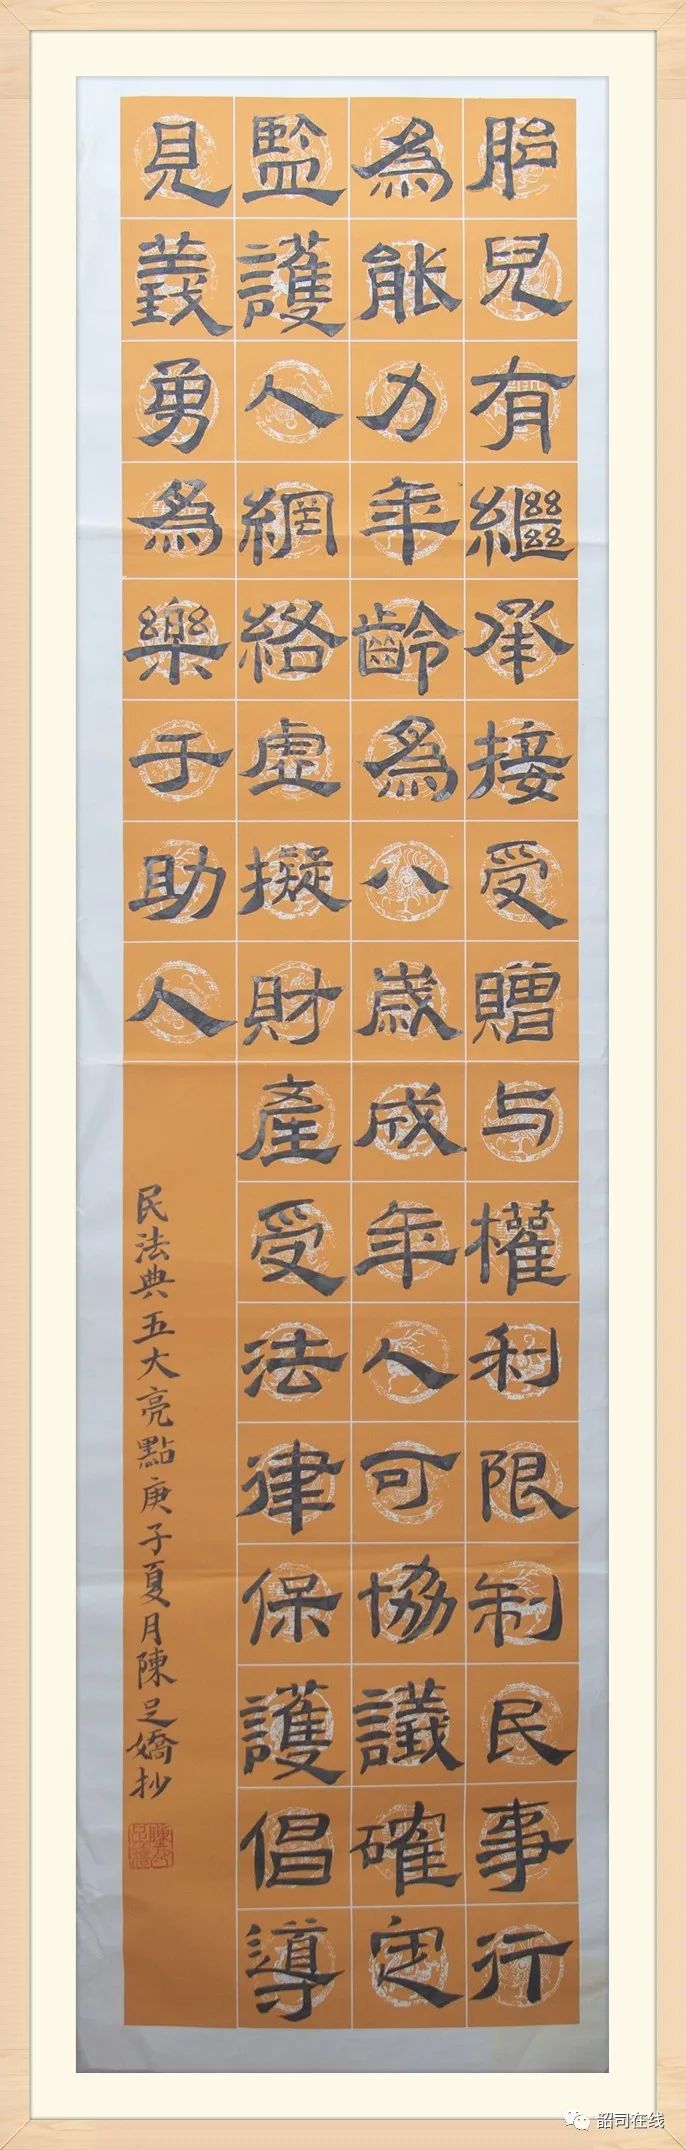 胎兒有繼承接受贈与權利限制民事行
為能力年齡為八歲成年人可協議確定
監護人網絡虛擬財產受法律保護倡導
見義勇為樂于助人
民法典五大亮點庚子夏月陳足嬌抄
韶司在线